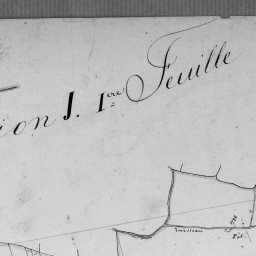 ion J. 1ère Feuille